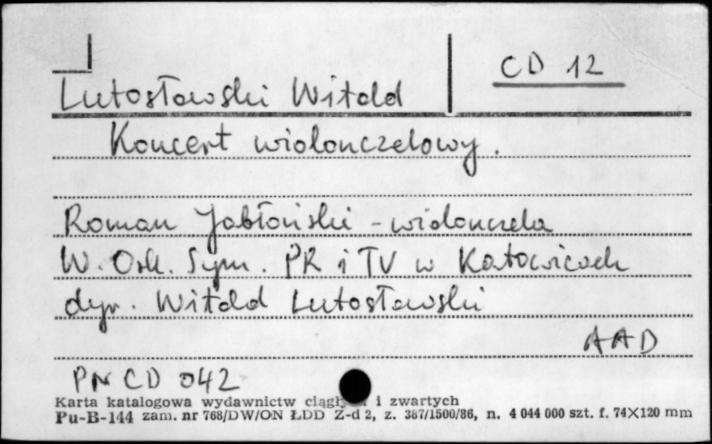 CD 12
Lutosławski Witold
Koncert wiolonczelowy.
Roman Jabłoński - wiolonczela
W. Ork. Sym. PR i TV w Katowicach
dyr. Witold Lutosławski
AAD
PN CD 042
Karta katalogowa wydawnictw i zwartych
Pu-B-144 zam. nr 768/DW/ON ŁDD Z-d 2, z. 387/1500/86, n. 4 044 000 szt. f. 74X120 mm